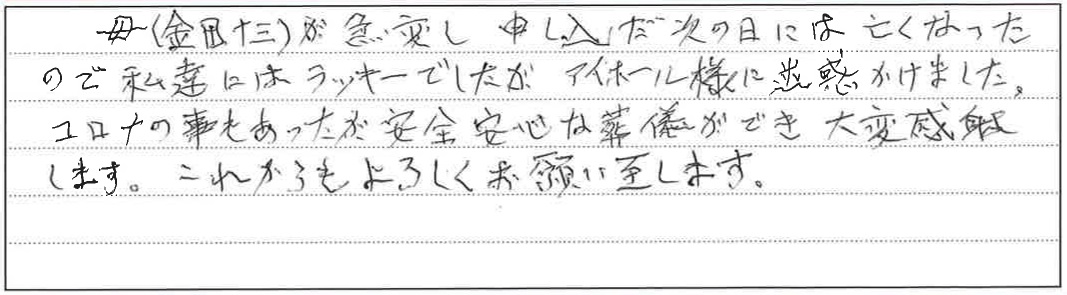 母(金田十三)が急変し 申し込んだ次の日には 亡くなった
ので 私達にはラッキーでしたが アイホール様に迷惑かけました。
コロナの事もあったが安全安心な葬儀ができ 大変感謝
します。これからもよろしくお願い至します。